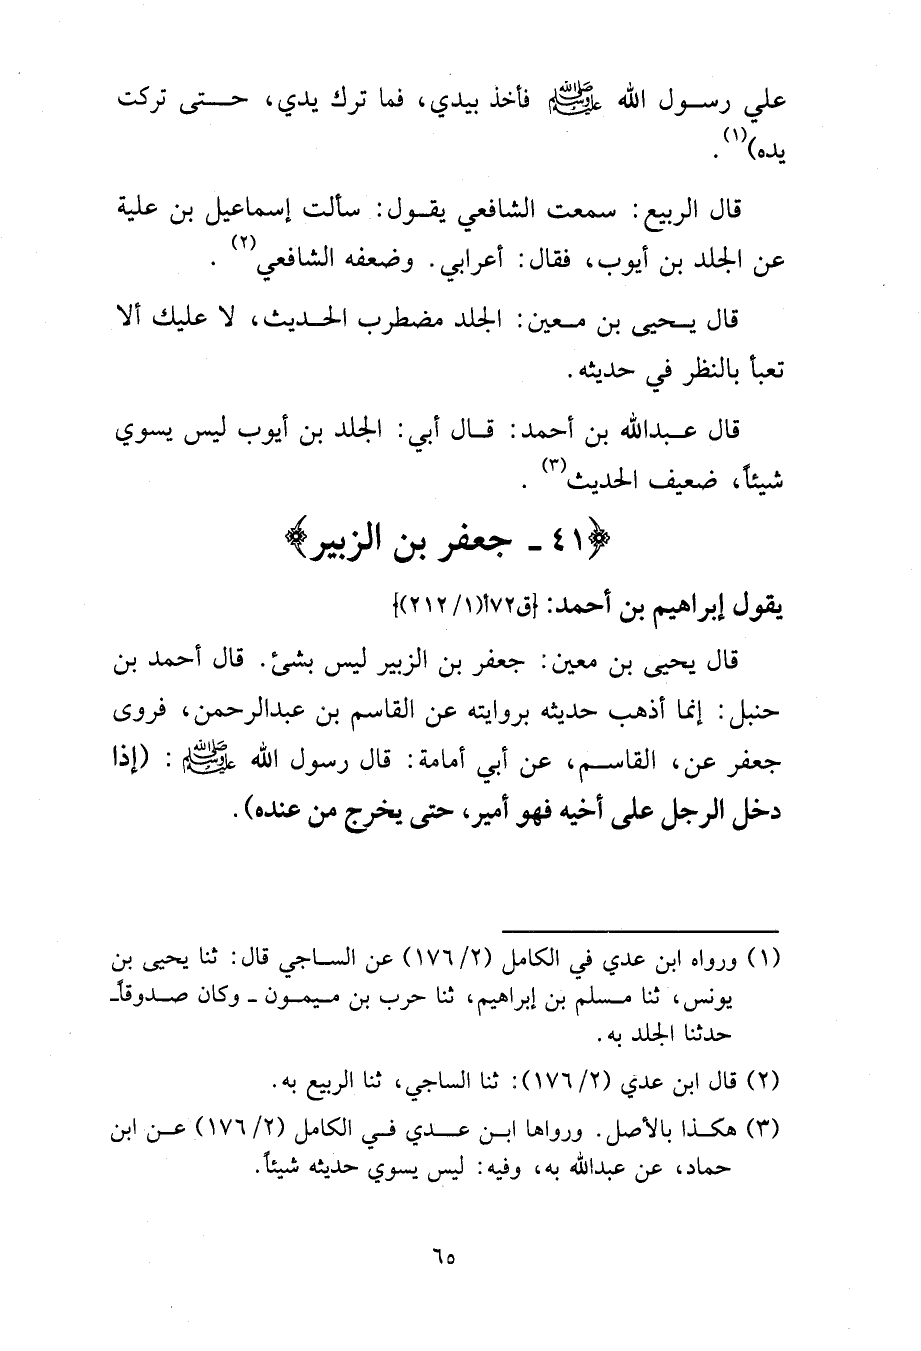 علي رسول الله ﷺ فأخذ بيدي، فما ترك يدي، حتى تركت
يده)(١).
قال الربيع: سمعت الشافعي يقول: سألت إسماعيل بن علية
عن الجلد بن أيوب، فقال: أعرابي. وضعفه الشافعي(٢).
قال يحيى بن معين: الجلد مضطرب الحديث، لا عليك ألا
تعبأ بالنظر في حديثه.
قال عبدالله بن أحمد: قال أبي: الجلد بن أيوب ليس يسوي
شيئاً، ضعيف الحديث(٣).
﴿٤١ ـ جعفر بن الزبير﴾
يقول إبراهيم بن أحمد: {ق٧٢أ(١/ ٢١٢)}
قال يحيى بن معين: جعفر بن الزبير ليس بشئ. قال أحمد بن
حنبل: إنما أذهب حديثه بروايته عن القاسم بن عبدالرحمن، فروى
جعفر عن، القاسم، عن أبي أمامة: قال رسول الله ﷺ: (إذا
دخل الرجل على أخيه فهو أمير، حتى يخرج من عنده).
(١) ورواه ابن عدي في الكامل (٢/ ١٧٦) عن الساجي قال: ثنا يحيى بن
يونس، ثنا مسلم بن إبراهيم، ثنا حرب بن ميمون ـ وكان صدوقاً ـ
حدثنا الجلد به.
(٢) قال ابن عدي (٢/ ١٧٦): ثنا الساجي، ثنا الربيع به.
(٣) هكذا بالأصل. ورواها ابن عدي في الكامل (٢/ ١٧٦) عن ابن
حماد، عن عبدالله به، وفيه: ليس يسوي حديثه شيئاً.
٦٥